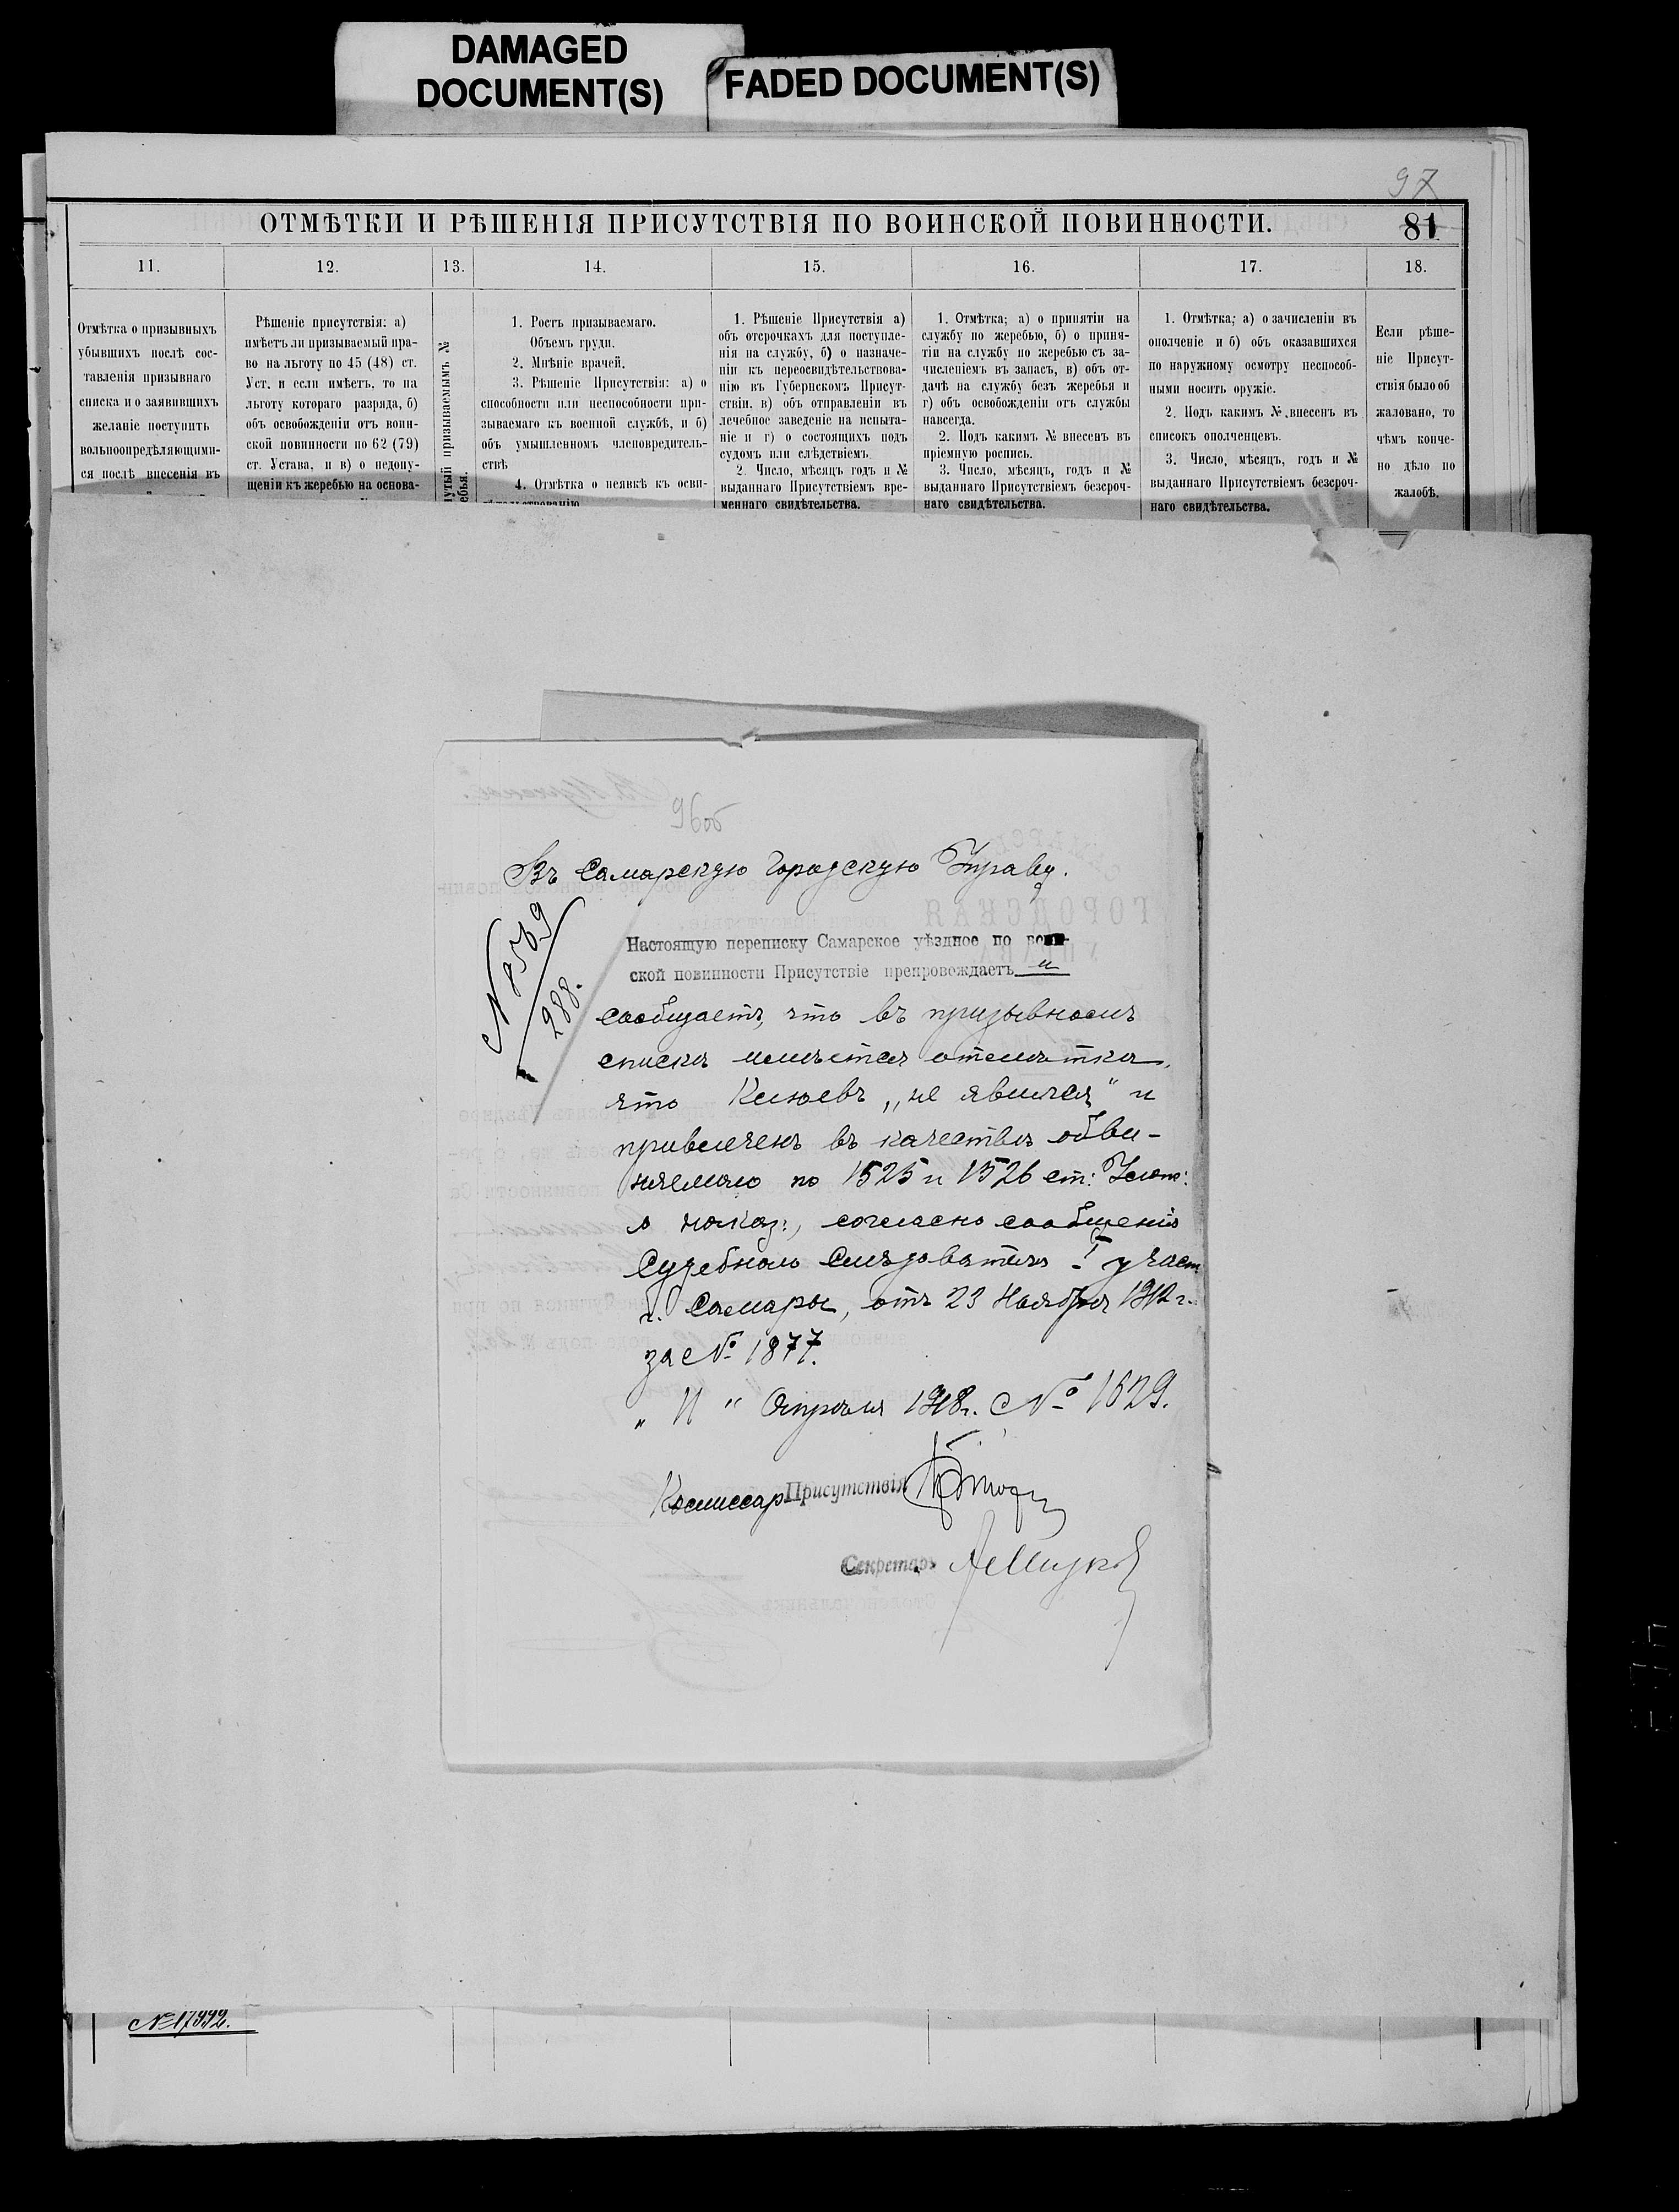 DAMAGED
DOCUMENT(S)
FADED DOCUMENT(S)
97
ОТМѢТКИ И РѢШЕНІЯ ПРИСУТСТВІЯ ПО ВОИНСКОЙ ПОВИННОСТИ.
81
11.
Отмѣтка о призывныхъ
убывшихъ послѣ сос-
тавленія призывнаго
списка и о заявившихъ
желаніе поступить
вольноопредѣляющими-
ся послѣ внесенія въ
12.
Рѣшеніе присутствія: а)
имѣетъ ли призываемый пра-
во на льготу по 45 (48) ст.
Уст. и если имѣетъ, то на
льготу котораго разряда, б)
объ освобожденіи отъ воин-
ской повинности по 62 (79)
ст. Устава, и в) о недопу-
щеніи къ жеребью на основа-
13.
утый призываемымъ №
ебья.
14.
1. Ростъ призываемаго.
Объемъ груди.
2. Мнѣніе врачей.
3. Рѣшеніе Присутствія: а) о
способности или неспособности при-
зываемаго къ военной службѣ, и б)
объ умышленномъ членовредитель-
ствѣ
4. Отмѣтка о неявкѣ къ осви-
дѣтельствованію
15.
1. Рѣшеніе Присутствія а)
объ отсрочкахъ для поступле-
нія на службу, б) о назначе-
ніи къ переосвидѣтельствова-
нію въ Губернскомъ Присут-
ствіи. в) объ отправленіи въ
лечебное заведеніе на испыта-
ніе и г) о состоящихъ подъ
судомъ или слѣдствіемъ
2. Число, мѣсяцъ годъ и №
выданнаго Присутствіемъ вре-
меннаго свидѣтельства.
16.
1. Отмѣтка; а) о принятіи на
службу по жеребью, б) о приня-
тіи на службу по жеребью съ за-
численіемъ въ запасъ, в) объ от-
дачѣ на службу безъ жеребья и
г) объ освобожденіи отъ службы
навсегда.
2. Подъ какимъ № внесенъ въ
пріемную роспись.
3. Число, мѣсяцъ, годъ и №
выданнаго Присутствіемъ безсроч-
наго свидѣтельства.
17.
1. Отмѣтка; а) о зачисленіи въ
ополченіе и б) объ оказавшихся
по наружному осмотру неспособ-
ными носить оружіе.
2. Подъ какимъ № внесенъ въ
списокъ ополченцевъ.
3. Число, мѣсяцъ, годъ и №
выданнаго Присутствіемъ безсроч-
наго свидѣтельства.
18.
Если рѣше-
ніе Присут-
ствія было об
жаловано, то
чѣмъ конче-
но дѣло по
жалобѣ.
96об
Въ Самарскую Городскую Управу.
288.
Настоящую переписку Самарское уѣздное по воин-
ской повинности Присутствіе препровождаетъ и
сообщаетъ, что въ призывномъ
спискѣ имѣется отмѣтка,
что „не явился" и
привлеченъ въ качествѣ обви-
няемаго по 1525 и 1526 ст: Улож:
о наказ:, согласно сообщенія
Судебнаго Слѣдователя I участ
г. Самары, отъ 23 Ноября 1912 г.
за № 1877.
„ 11 " Апрѣля 1918г. № 1629.
Комиссар Присутствія
Секретарь
№17992.